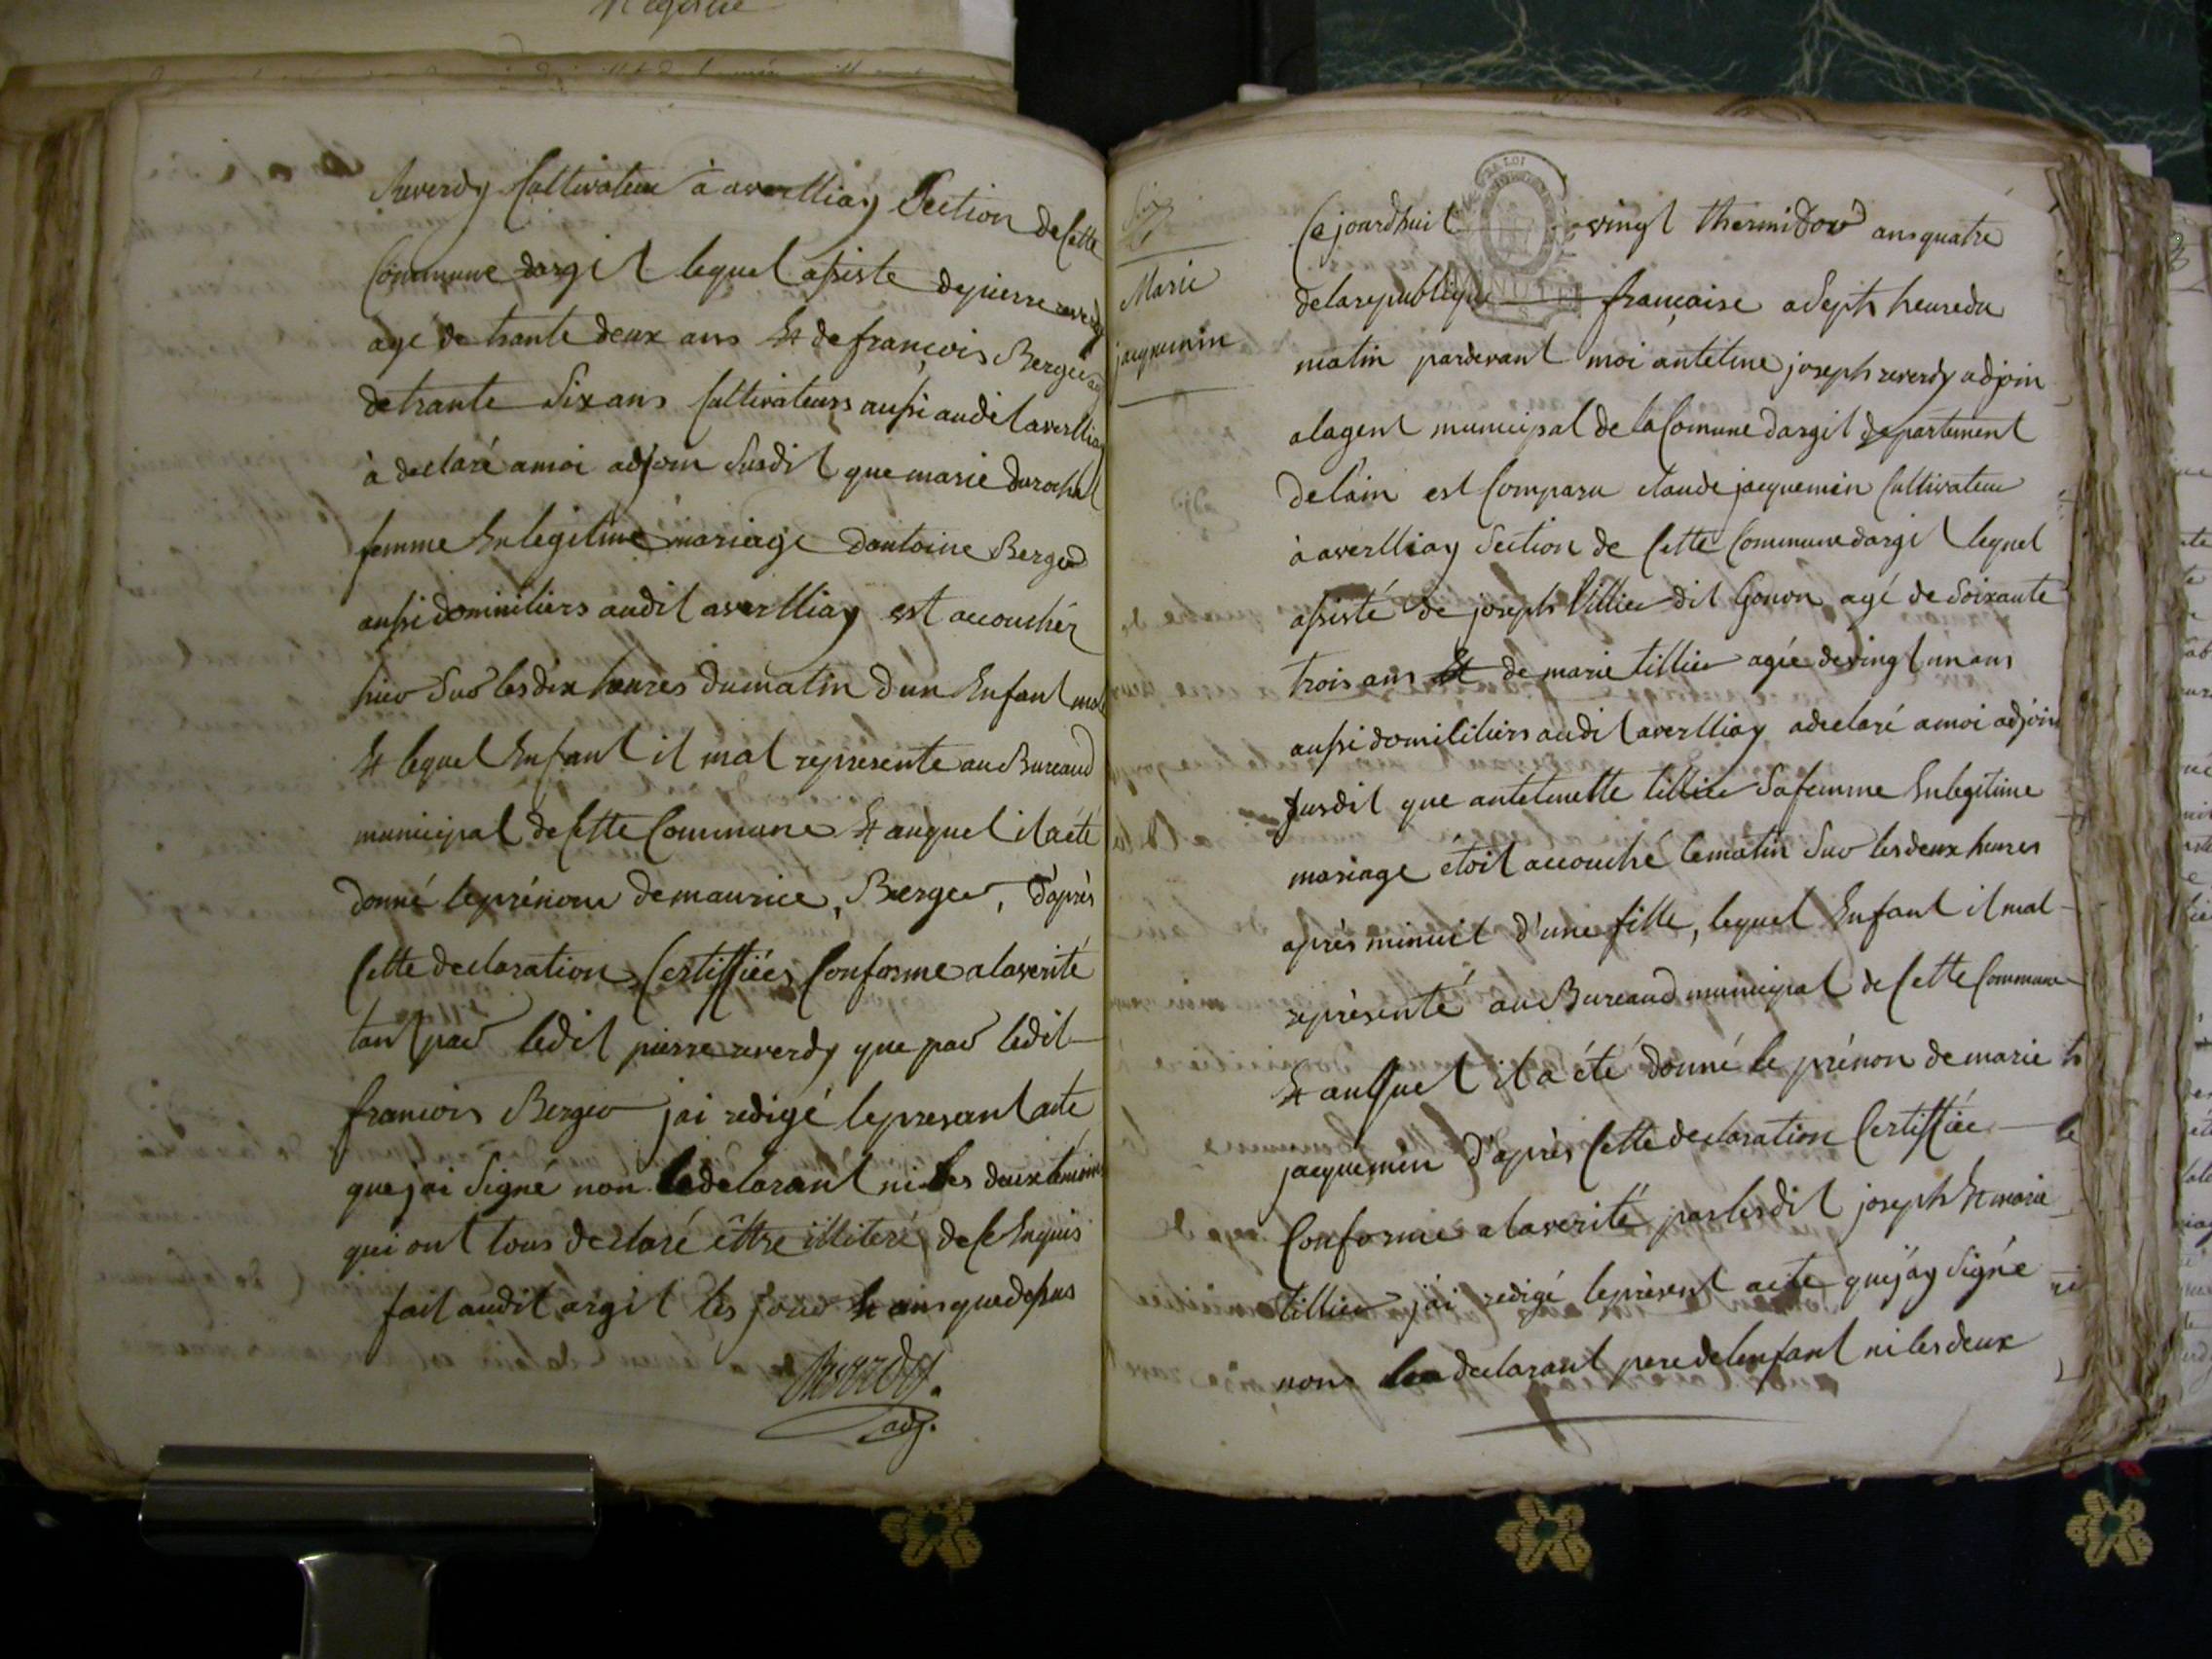 Reverdy Cultivateur à averlliay Section de Cette
Commune dargit lequel assiste de pierre reverdy
agé de trante deux ans Et de françois Berger
de trante Six ans Cultivateurs aussi audit averlliay
à declaré a moi adjoin Susdit que marie durochat
femme En legitime mariage dantoine Berger
aussi dominiliers audit averlliay est accouchér
hier Sur les dix heures du matin dun Enfant mal
Et lequel Enfant il mat represente au Bureaud
municipal de Cette Commune Et auquel il a été
donné le prénom de maurice, Berger, d'après
Cette declaration Certiffiées Conforme a la verité
tant par ledit pierre reverdy que par ledit
francois Berger jai redigé le presant acte
que jai Signé non le declarant ni les deux temoins
qui ont tous declaré êttre illiteré de ce Enquis
fait audit argit les jour Et ans que dessus
Reverdy.
adj.
Marie
jacquemin
Ce jourdhuit vingt thermidor ans quatre
de la republique française a Septh heure du
matin pardevant moi antelme joseph reverdy adjoin
a lagent municipal de la Comune dargit departement
de lain est Comparu claude jacquemin Cultivateur
à averlliay Section de Cette Commune dargit lequel
assisté de joseph tillier dit Gonon agé de Soixante
trois ans Et de marie tillier agée de vingt un ans
aussi domiliciliers audit averlliay a declaré a moi adjoin
Susdit que antelmette tillier Sa femme En legitime
mariage étoit accouché ce matin Sur les deux heures
après minuit d'une fille, lequel Enfant il mat
représenté au Bureaud municipal de Cette Commune
Et auquel il a été donné le prénon de marie
jacquemin d'après Cette declaration Certiffiée
Conforme a la verité par lesdit joseph Et marie
tillier jai redigé le présent acte que j'ay Signé
nons le declarant pere de lenfant ni les deux